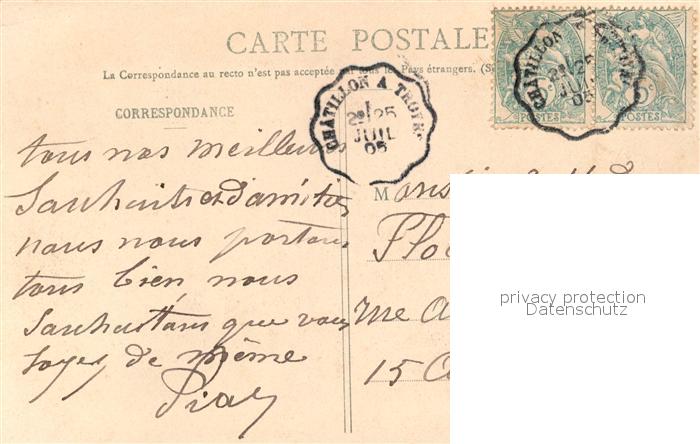 CARTE POSTALE
La Correspondance au recto n'est pas acceptée par tous les Pays étrangers. (S
CORRESPONDANCE
CHÂTILLON A TROYES
1
2E 25
JUIL
05
CHÂTILLON
2E 25
JUIL
05
POSTES
POSTES
tous nos meilleurs
Souhaits et d'amitiés
nous nous portons
tous bien nous
Souhaitons que vous
soyez de même
M
Flo
me A
15
privacy protection
Datenschutz